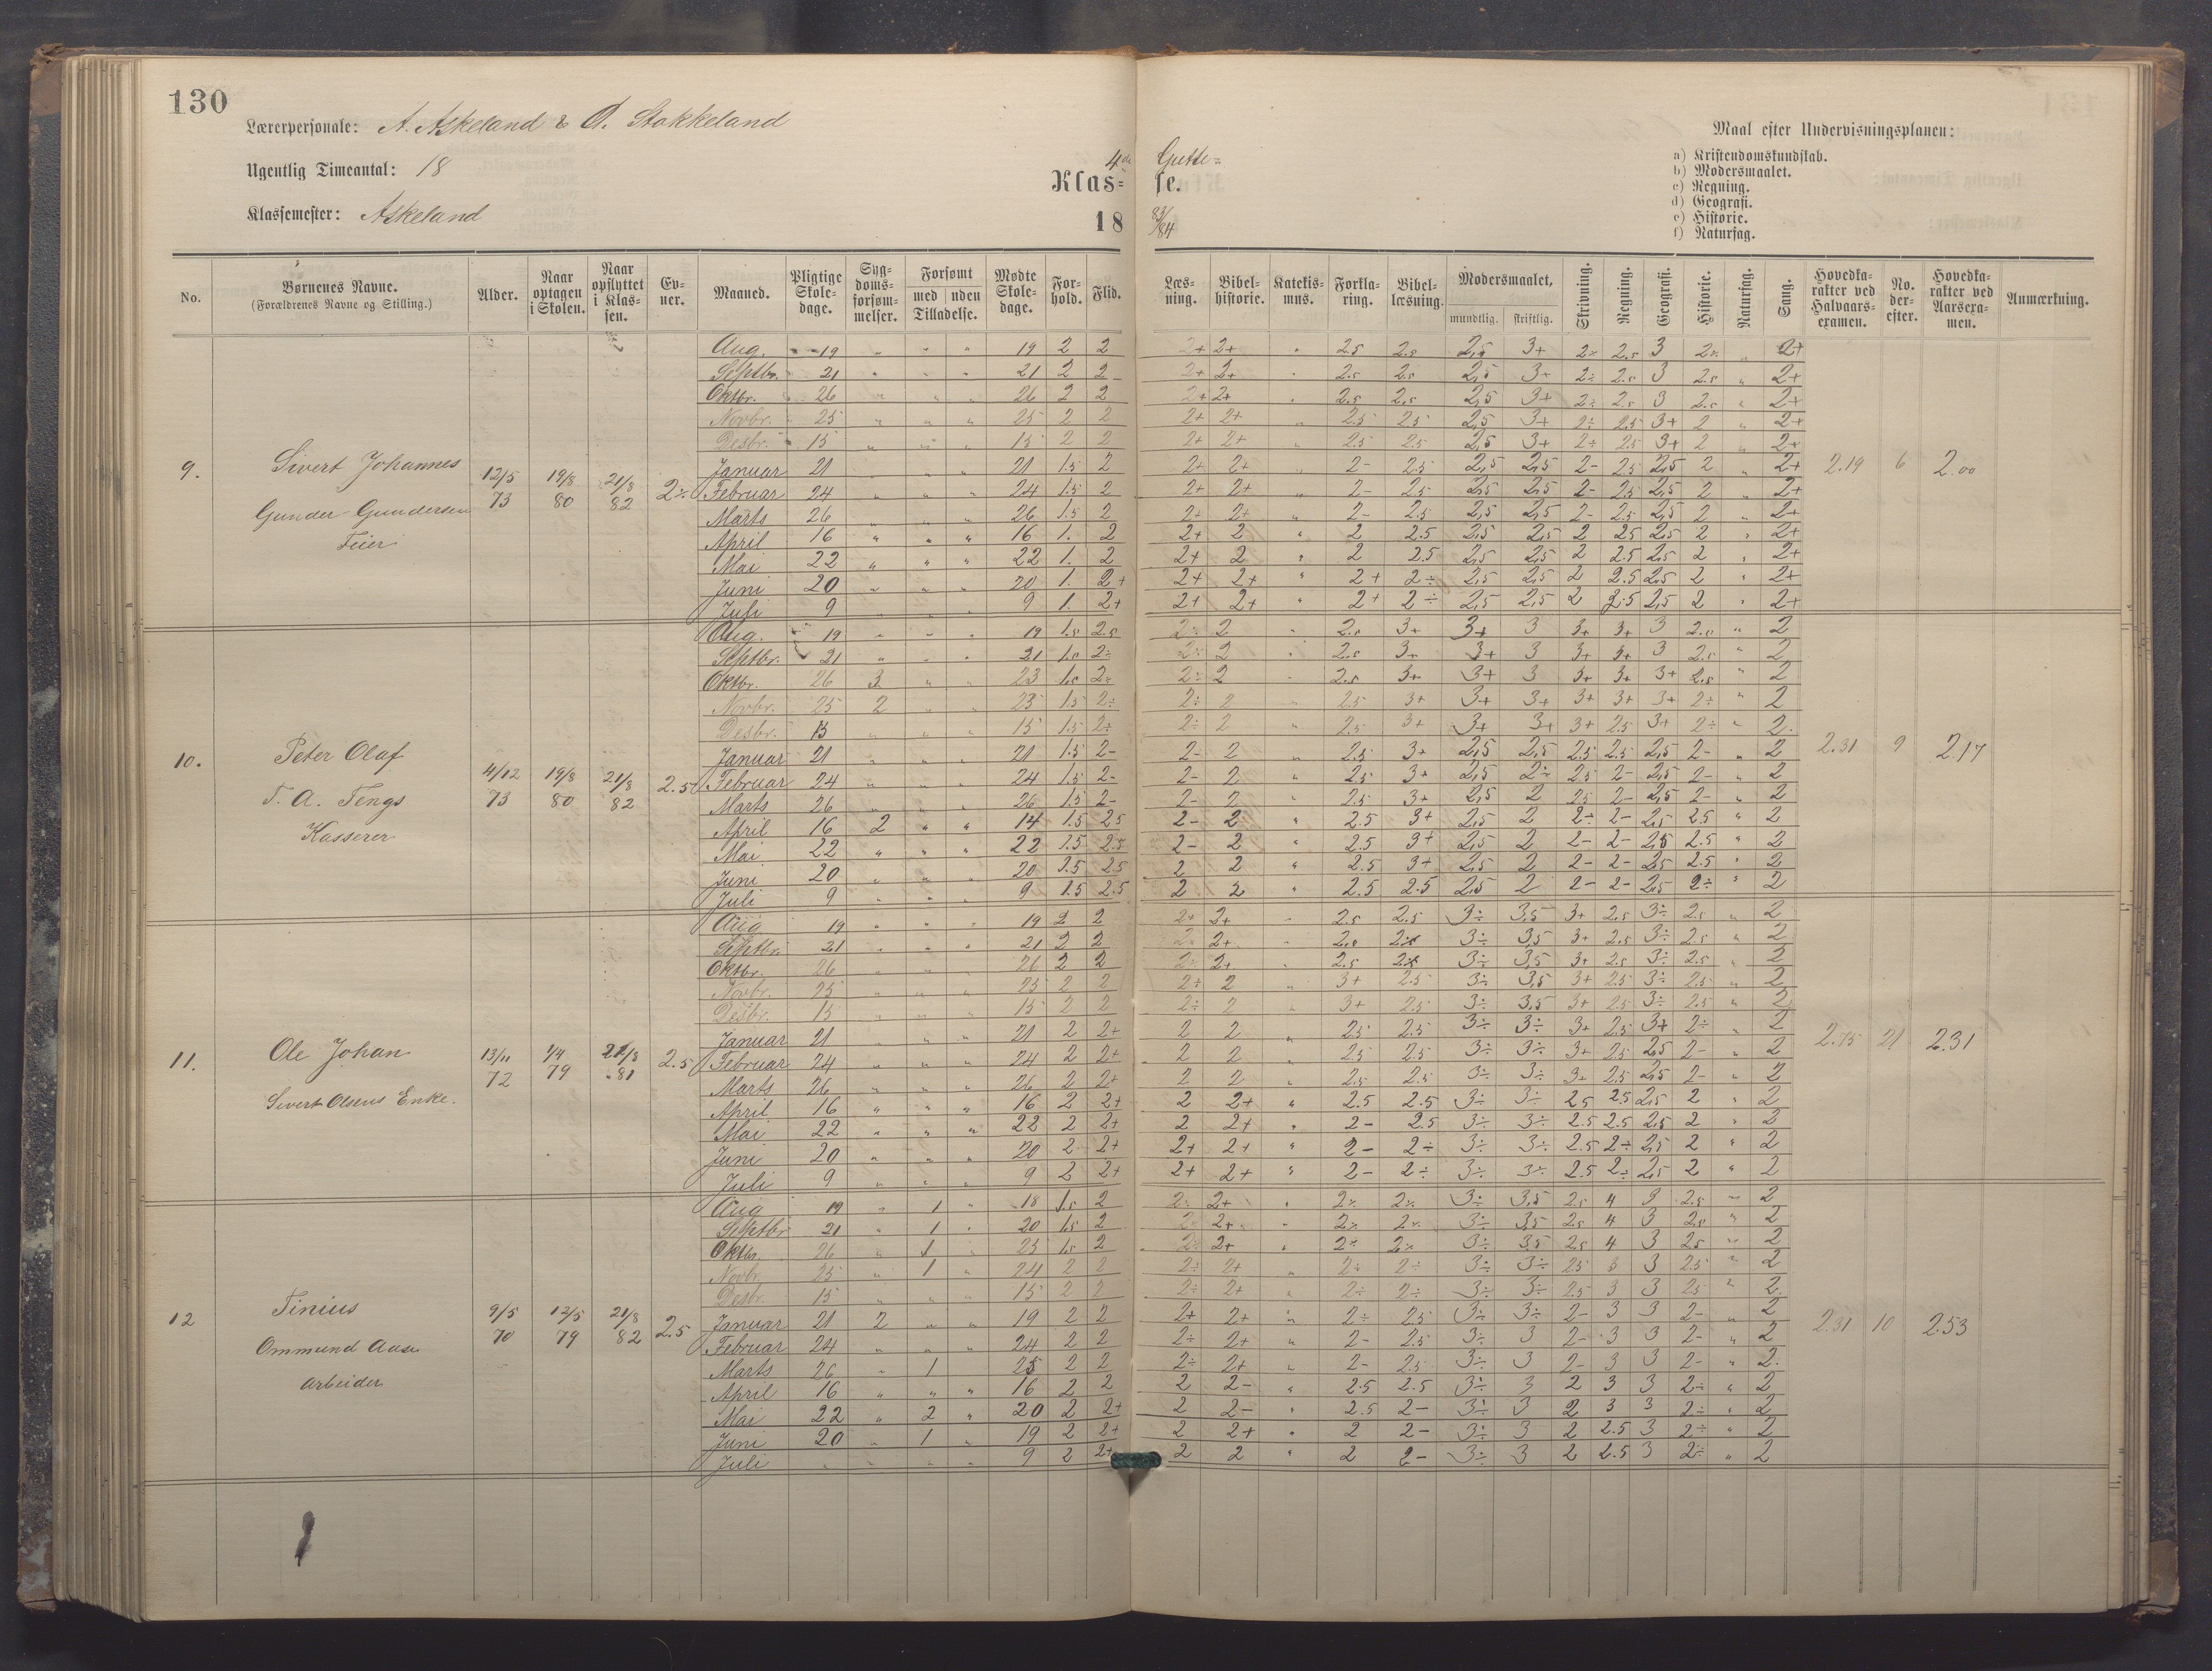 130
Lærerpersonale: A. Askeland & O. Stokkeland
Ugentlig Timeantal: 18
Klassemester: Askeland
4de Gutte=
Klas= se.
18 83/84
Maal efter Undervisningsplanen:
a) Kristendomskundskab.
b) Modersmaalet.
c) Regning.
d) Geografi.
e) Historie.
f) Naturfag.
No. | Børnenes Navne. (Forældrenes Navne og Stilling.) | Alder. | Naar optagen i Skolen. | Naar opflyttet i Klassen. | Evner. | Maaned. | Pligtige Skoledage. | Sygdomsforsømmelser. | Forsømt med uden Tilladelse. | Mødte Skoledage. | Forhold. | Flid. | Læsning. | Bibelhistorie. | Katekismus. | Forklaring. | Bibellæsning. | Modersmaalet, mundtlig. skriftlig. | Skrivning. | Regning. | Geografi. | Historie. | Naturfag. | Sang. | Hovedkarakter ved Halvaarsexamen. | No. derefter. | Hovedkarakter ved Aarsexamen. | Anmærkning.
9. Sivert Johannes
Gunder Gundersen
Feier
12/5 73 | 19/8 80 | 21/8 82 | 2÷
Aug. 19 " " " 19 2 2 2+ 2+ " 2.5 2.5 2,5 3+ 2÷ 2.5 3 2÷ " 2+
Septbr. 21 " " " 21 2 2 2+ 2+ " 2.5 2.5 2,5 3+ 2÷ 2.5 3 2.5 " 2+
Oktbr. 26 " " " 26 2 2 2+ 2+ " 2.5 2.5 2,5 3+ 2÷ 2.5 3 2.5 " 2+
Novbr. 25 " " " 25 2 2 2+ 2+ " 2.5 2.5 2,5 3+ 2÷ 2.5 3+ 2 " 2+
Desbr. 15 " " " 15 2 2 2+ 2+ " 2.5 2.5 2,5 3+ 2÷ 2.5 3+ 2 " 2+
Januar 21 " " " 21 1.5 2 2+ 2+ " 2- 2.5 2,5 2,5 2- 2.5 2,5 2 " 2+
Februar 24 " " " 24 1.5 2 2+ 2+ " 2- 2.5 2,5 2,5 2- 2.5 2,5 2 " 2+
Marts 26 " " " 26 1.5 2 2+ 2+ " 2- 2.5 2,5 2,5 2- 2.5 2,5 2 " 2+
April 16 " " " 16 1. 2 2+ 2 " 2 2.5 2,5 2,5 2 2.5 2,5 2 " 2+
Mai 22 " " " 22 1. 2 2+ 2 " 2 2.5 2,5 2,5 2 2.5 2,5 2 " 2+
Juni 20 " " " 20 1. 2+ 2+ 2+ " 2+ 2÷ 2,5 2,5 2 2.5 2,5 2 " 2+
Juli 9 " " " 9 1. 2+ 2+ 2+ " 2+ 2÷ 2,5 2,5 2 2.5 2,5 2 " 2+
2.19 | 6 | 2.00
10. Peter Olaf
T. A. Tengs
Kasserer
4/12 73 | 19/8 80 | 21/8 82 | 2.5
Aug. 19 " " " 19 1.5 2.5 2÷ 2 " 2.5 3+ 3+ 3 3+ 3+ 3 2.5 " 2
Septbr. 21 " " " 21 1.5 2÷ 2÷ 2 " 2.5 3+ 3+ 3 3+ 3+ 3 2.5 " 2
Oktbr. 26 3 " " 23 1.5 2÷ 2÷ 2 " 2.5 3+ 3+ 3 3+ 3+ 3+ 2.5 " 2
Novbr. 25 2 " " 23 1.5 2÷ 2÷ 2 " 2.5 3+ 3+ 3+ 3+ 3+ 3+ 2÷ " 2
Desbr. 15 " " " 15 1.5 2÷ 2÷ 2 " 2.5 3+ 3+ 3+ 3+ 2.5 3+ 2÷ " 2.
Januar 21 " " " 21 1.5 2- 2- 2 " 2.5 3+ 2,5 2,5 2.5 2.5 2,5 2- " 2
Februar 24 " " " 24 1.5 2- 2- 2 " 2.5 3+ 2,5 2÷ 2.5 2- 2,5 2- " 2
Marts 26 " " " 26 1.5 2- 2- 2 " 2.5 3+ 2,5 2 2.5 2- 2,5 2- " 2
April 16 2 " " 14 1.5 2.5 2- 2 " 2.5 3+ 2,5 2 2÷ 2- 2,5 2.5 " 2
Mai 22 " " " 22 1.5 2.5 2- 2 " 2.5 3+ 2,5 2 2- 2- 2,5 2.5 " 2
Juni 20 " " " 20 1.5 2.5 2 2 " 2.5 3+ 2,5 2 2- 2- 2,5 2.5 " 2
Juli 9 " " " 9 1.5 2.5 2 2 " 2.5 2.5 2,5 2 2- 2- 2,5 2÷ " 2
2.31 | 9 | 2.17
11. Ole Johan
Sivert Olsens Enke.
13/11 72 | 1/4 79 | 21/8 81 | 2.5
Aug 19 " " " 19 2 2 2+ 2+ " 2.5 2.5 3÷ 3,5 3+ 2.5 3÷ 2.5 " 2
Septbr. 21 " " " 21 2 2 2÷ 2+ " 2.5 2÷ 3÷ 3,5 3+ 2.5 3÷ 2.5 " 2
Oktbr. 26 " " " 26 2 2 2÷ 2+ " 2.5 2÷ 3÷ 3,5 3+ 2.5 3÷ 2.5 " 2
Novbr. 25 " " " 25 2 2 2÷ 2 " 3+ 2.5 3÷ 3,5 3+ 2.5 3÷ 2.5 " 2
Desbr. 15 " " " 15 2 2 2÷ 2 " 3+ 2.5 3÷ 3,5 3+ 2.5 3÷ 2.5 " 2
Januar 21 " " " 21 2 2+ 2 2 " 2.5 2.5 3÷ 3÷ 3+ 2.5 3+ 2÷ " 2
Februar 24 " " " 24 2 2+ 2 2 " 2.5 2.5 3÷ 3÷ 3+ 2.5 2,5 2- " 2
Marts 26 " " " 26 2 2+ 2 2 " 2.5 2.5 3÷ 3÷ 3+ 2.5 2,5 2- " 2
April 16 " " " 16 2 2+ 2 2+ " 2.5 2.5 3÷ 3÷ 2.5 2.5 2,5 2 " 2
Mai 22 " " " 22 2 2+ 2 2+ " 2- 2.5 3÷ 3÷ 2.5 2.5 2,5 2 " 2
Juni 20 " " " 20 2 2+ 2+ 2+ " 2- 2÷ 3÷ 3÷ 2.5 2÷ 2,5 2 " 2
Juli 9 " " " 9 2 2+ 2+ 2+ " 2- 2÷ 3÷ 3÷ 2.5 2÷ 2,5 2 " 2
21 | 2.31
12 Tinius
Ommund Aase
arbeider
9/5 70 | 12/5 79 | 21/8 82 | 2.5
Aug 19 " 1 " 18 1.5 2 2÷ 2+ " 2÷ 2÷ 3÷ 3,5 2.5 4 3 2.5 " 2
Septbr 21 " 1 " 20 1.5 2 2÷ 2+ " 2÷ 2÷ 3÷ 3,5 2.5 4 3 2.5 " 2
Oktbr. 26 " 1 " 25 1.5 2 2÷ 2+ " 2÷ 2÷ 3÷ 3,5 2.5 4 3 2.5 " 2
Novbr. 25 " 1 " 24 2 2 2÷ 2+ " 2÷ 2÷ 3÷ 3÷ 2.5 3 3 2.5 " 2
Desbr. 15 " " " 15 2 2 2÷ 2+ " 2÷ 2÷ 3÷ 3÷ 2.5 3 3 2.5 " 2.
Januar 21 2 " " 19 2 2 2+ 2+ " 2÷ 2.5 3÷ 3÷ 2- 3 3 2- " 2
Februar 24 " " " 24 2 2 2÷ 2+ " 2- 2.5 3÷ 3 2- 3 3 2- " 2
Marts 26 " 1 " 25 2 2 2÷ 2+ " 2- 2.5 3÷ 3 2- 3 3 2- " 2.
April 16 " " " 16 2 2 2 2- " 2.5 2.5 3÷ 3 2 3 3 2÷ " 2
Mai 22 " 2 " 20 2 2+ 2 2- " 2.5 2- 3÷ 3 2 3 3 2÷ " 2
Juni 20 " 1 " 19 2 2+ 2 2+ " 2 2- 3÷ 3 2 2.5 3 2÷ " 2
Juli " " " " 9 2 2+ 2 2 " 2 2- 3÷ 3 2 2.5 3 2÷ " 2
2.31 | 10 | 2.53